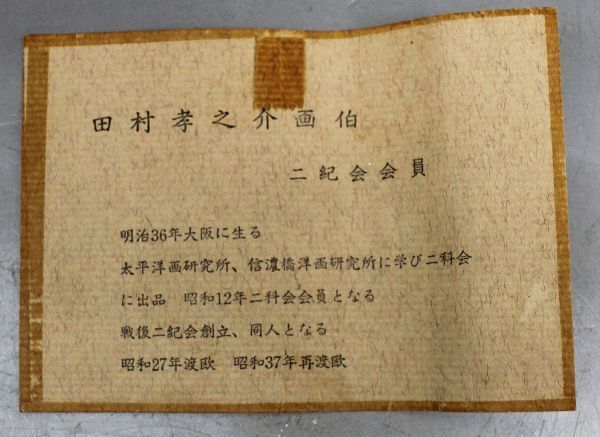 田村孝之介画伯
二紀会会員
明治36年大阪に生る
太平洋画研究所、信濃橋洋画研究所に学び二科会
に出品　昭和12年二科会会員となる
戦後二紀会創立、同人となる
昭和27年渡欧　昭和37年再渡欧